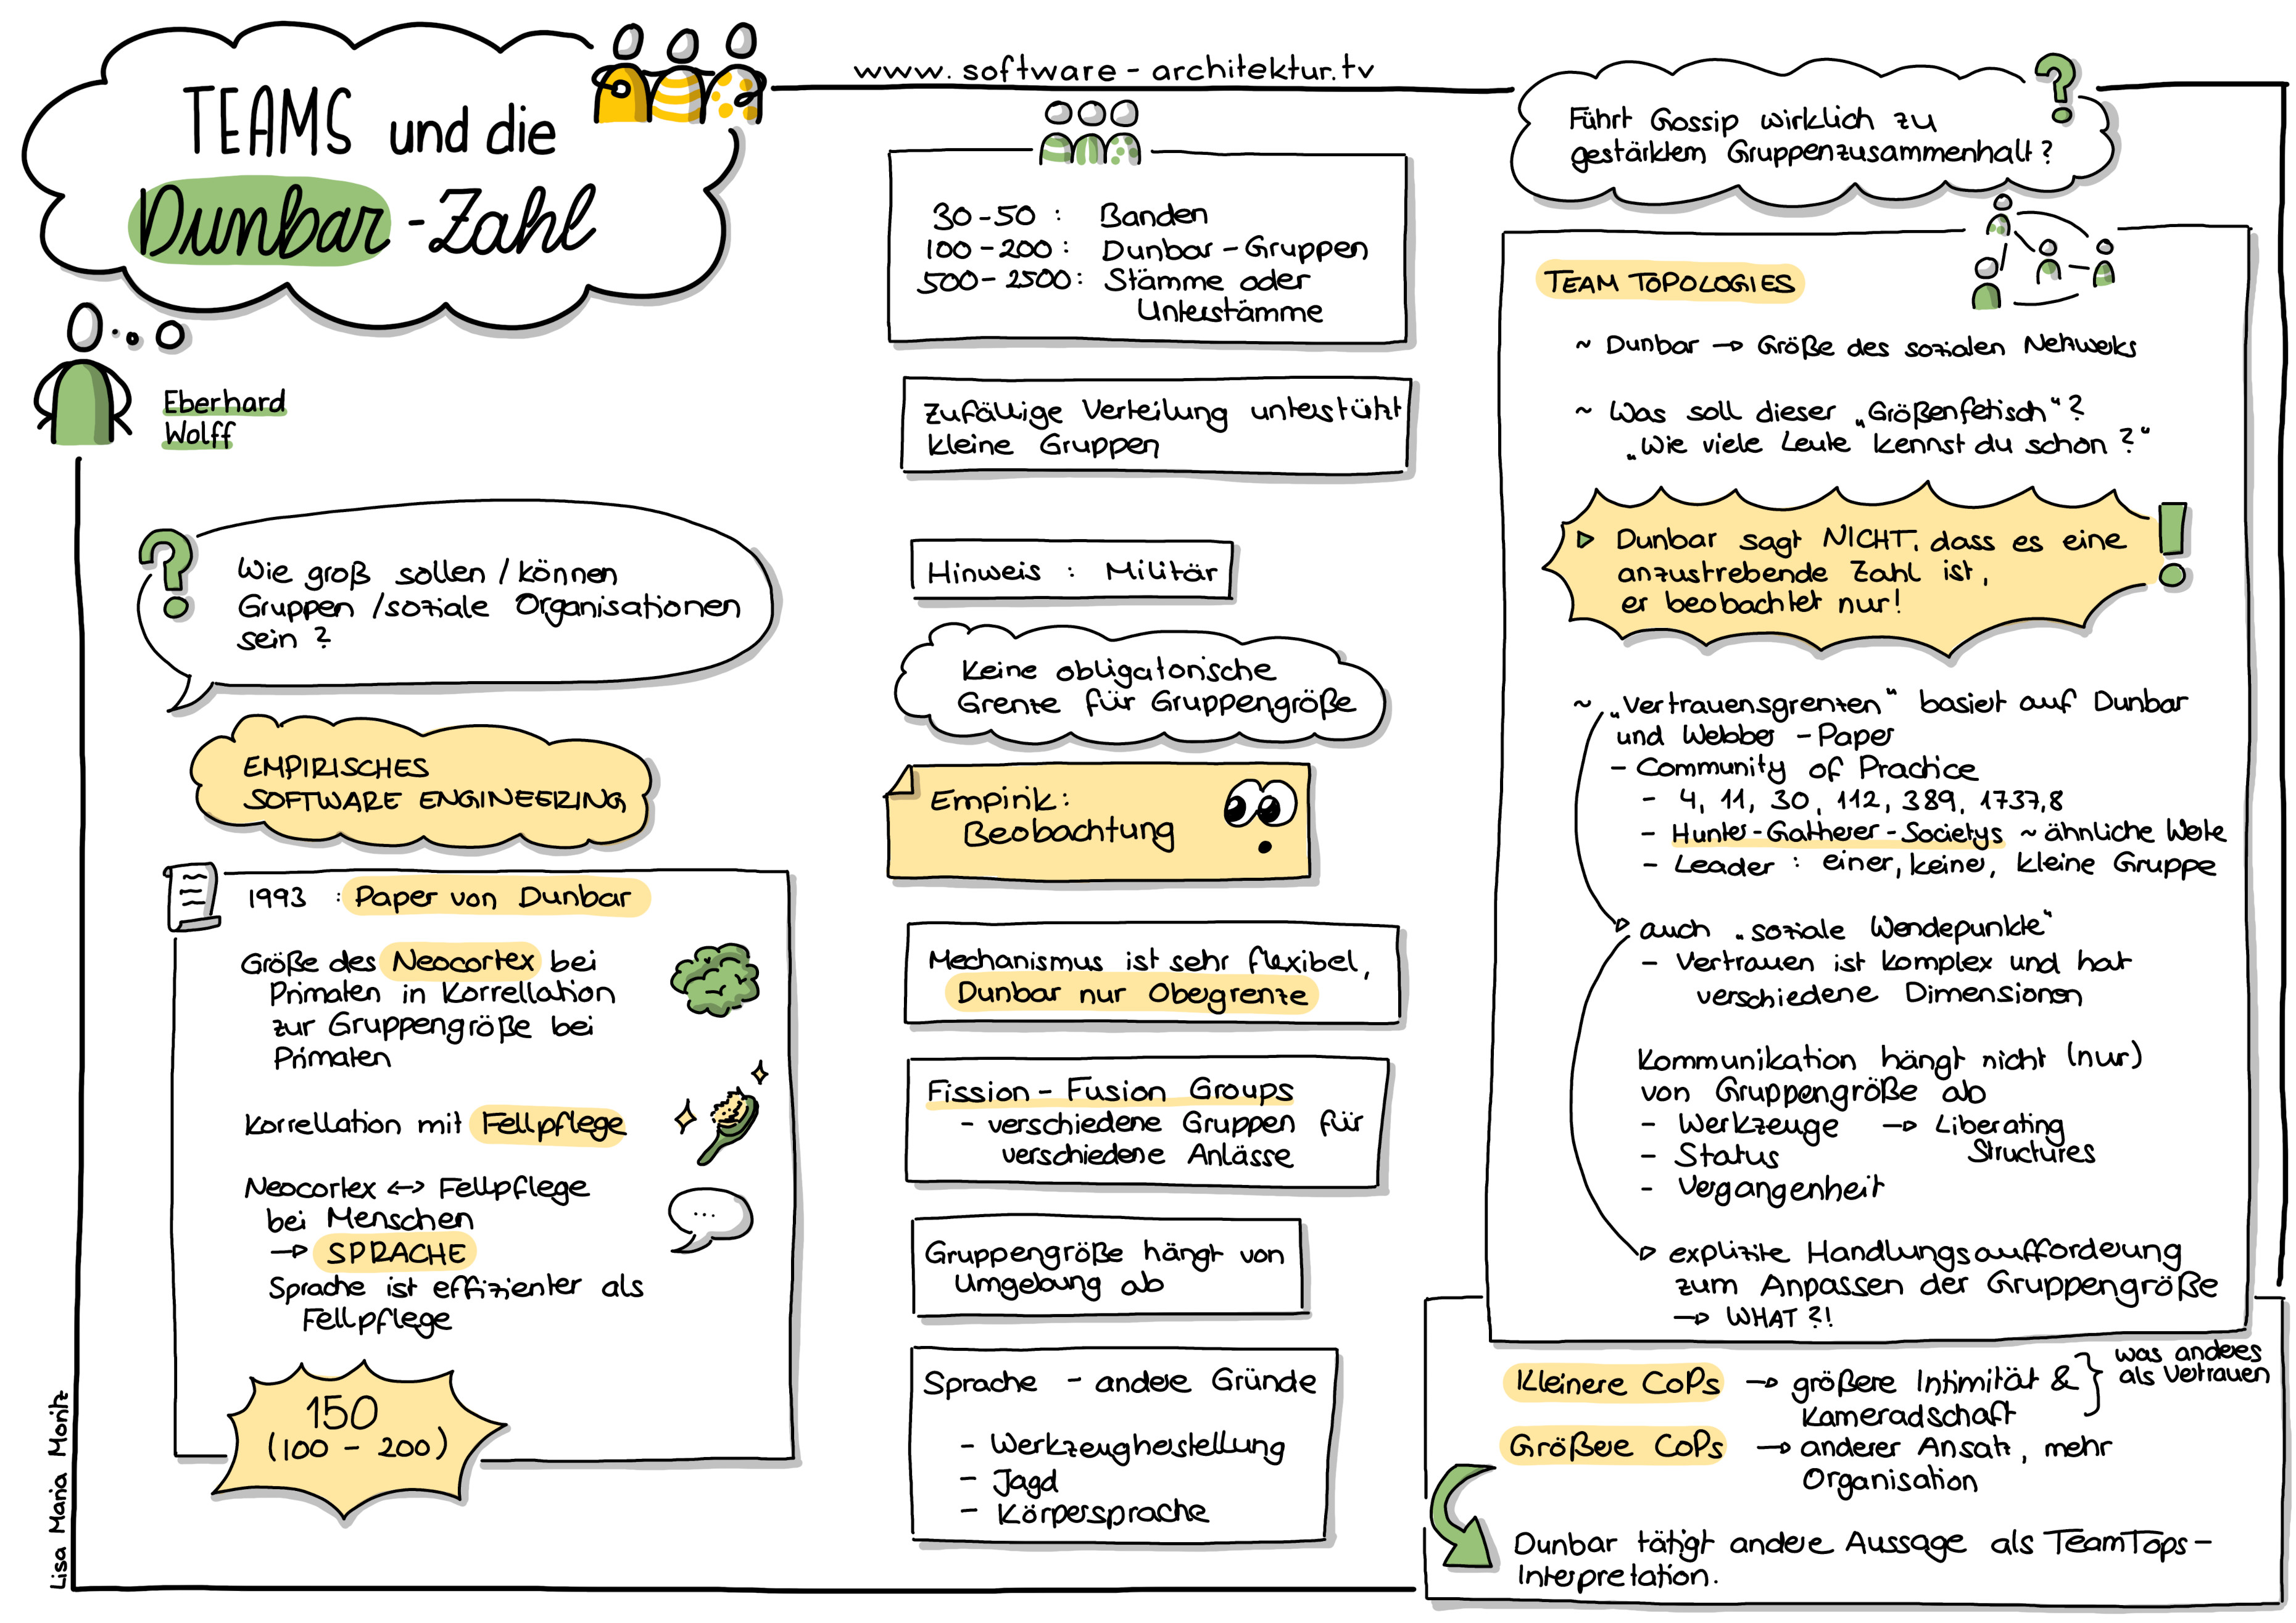 TEAMS und die
Dunbar-Zahl
Eberhard
Wolff
www.software-architektur.tv
Wie groß sollen / können
Gruppen / soziale Organisationen
sein ?
EMPIRISCHES
SOFTWARE ENGINEERING
1993 : Paper von Dunbar
Größe des Neocortex bei
Primaten in Korrellation
zur Gruppengröße bei
Primaten
Korrellation mit Fellpflege
Neocortex <-> Fellpflege
bei Menschen
→ SPRACHE
Sprache ist effizienter als
Fellpflege
...
150
(100 - 200)
Lisa Maria Moritz
30-50 : Banden
100-200 : Dunbar-Gruppen
500-2500 : Stämme oder
Unterstämme
Zufällige Verteilung unterstützt
kleine Gruppen
Hinweis : Militär
Keine obligatorische
Grenze für Gruppengröße
Empirik:
Beobachtung
Mechanismus ist sehr flexibel,
Dunbar nur Obergrenze
Fission - Fusion Groups
- verschiedene Gruppen für
verschiedene Anlässe
Gruppengröße hängt von
Umgebung ab
Sprache - andere Gründe
- Werkzeugherstellung
- Jagd
- Körpersprache
Führt Gossip wirklich zu
gestärktem Gruppenzusammenhalt ?
TEAM TOPOLOGIES
~ Dunbar → Größe des sozialen Netzwerks
~ Was soll dieser „Größenfetisch“?
„Wie viele Leute kennst du schon ?“
Dunbar sagt NICHT, dass es eine
anzustrebende Zahl ist,
er beobachtet nur!
~ „Vertrauensgrenzen“ basiert auf Dunbar
und Webber - Paper
- Community of Practice
- 4, 11, 30, 112, 389, 1737,8
- Hunter-Gatherer-Societys ~ ähnliche Werte
- Leader : einer, keiner, kleine Gruppe
auch „soziale Wendepunkte“
- Vertrauen ist komplex und hat
verschiedene Dimensionen
Kommunikation hängt nicht (nur)
von Gruppengröße ab
- Werkzeuge → Liberating
Structures
- Status
- Vergangenheit
explizite Handlungsaufforderung
zum Anpassen der Gruppengröße
→ WHAT ?!
Kleinere CoPs → größere Intimität &
Kameradschaft
was anderes
als Vertrauen
Größere CoPs → anderer Ansatz, mehr
Organisation
Dunbar tätigt andere Aussage als TeamTops-
Interpretation.